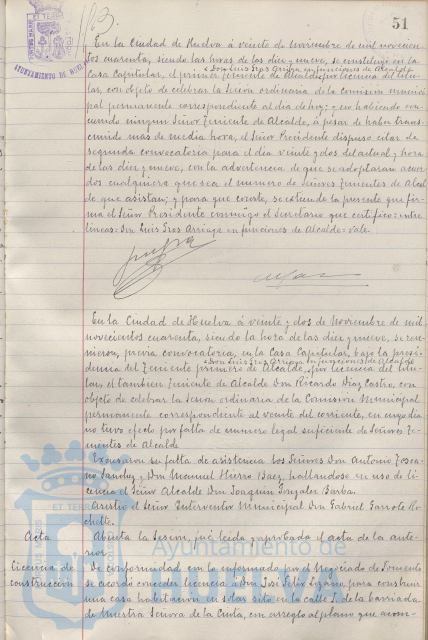 51
AYUNTAMIENTO DE HUELVA
En la Ciudad de Huelva á veinte de Noviembre de mil novecien-
tos cuarenta, siendo las horas de las diez y nueve, se constituyó en la
Don Luis Ires Arriaga en funciones de Alcalde
Casa Capitular, el primer Teniente de Alcalde por licencia del titu-
lar, con objeto de celebrar la sesión ordinaria de la comisión munici-
pal permanente correspondiente al dia de hoy; y no habiendo con-
currido ningun Señor Teniente de Alcalde, á pesar de haber trans-
currido más de media hora, el Señor Presidente dispuso citar de
segunda convocatoria para el dia veinte y dos del actual y hora
de las diez y nueve, con la advertencia de que se adoptarán acuer-
dos cualquiera que sea el numero de señores Tenientes de Alcal-
de que asistan; y para que conste, se extiende la presente que fir-
ma el Señor Presidente conmigo el Secretario que certifico = entre
lineas = Don Luis Ires Arriaga en funciones de Alcalde = Vale.
En la Ciudad de Huelva á veinte y dos de Noviembre de mil
novecientos cuarenta, siendo la hora de las diez y nueve, se reu-
nieron, previa convocatoria, en la Casa Capitular, bajo la presi-
Don Luis Ires Arriaga en funciones de Alcalde
dencia del Teniente primero de Alcalde, por licencia del titu-
lar, el tambien Teniente de Alcalde Don Ricardo Diaz Castro, con
objeto de celebrar la sesion ordinaria de la Comisión Municipal
permanente correspondiente al veinte del corriente, en cuyo dia
no tuvo efecto por falta de numero legal suficiente de Señores Te-
nientes de Alcalde
Excusaron su falta de asistencia los Señores Don Antonio Tosca-
no Sanchez y Don Manuel Hierro Baez, hallandose en uso de li-
cencia el Señor Alcalde Don Joaquin Gonzalez Barba.
Asistió el Señor Interventor Municipal Don Gabriel Garrote Ro-
chette.
Acta Abierta la sesion, fué leida y aprobada el acta de la ante-
rior.
Licencia de De conformidad con lo informado por el Negociado de Fomento
construccion se acordó conceder licencia á Don José Feliz Lozano, para construir
una casa habitacion en solar sito en la calle J. de la barriada
de Nuestra Señora de la Cinta, con arreglo al plano que acom-
Ayuntamiento de